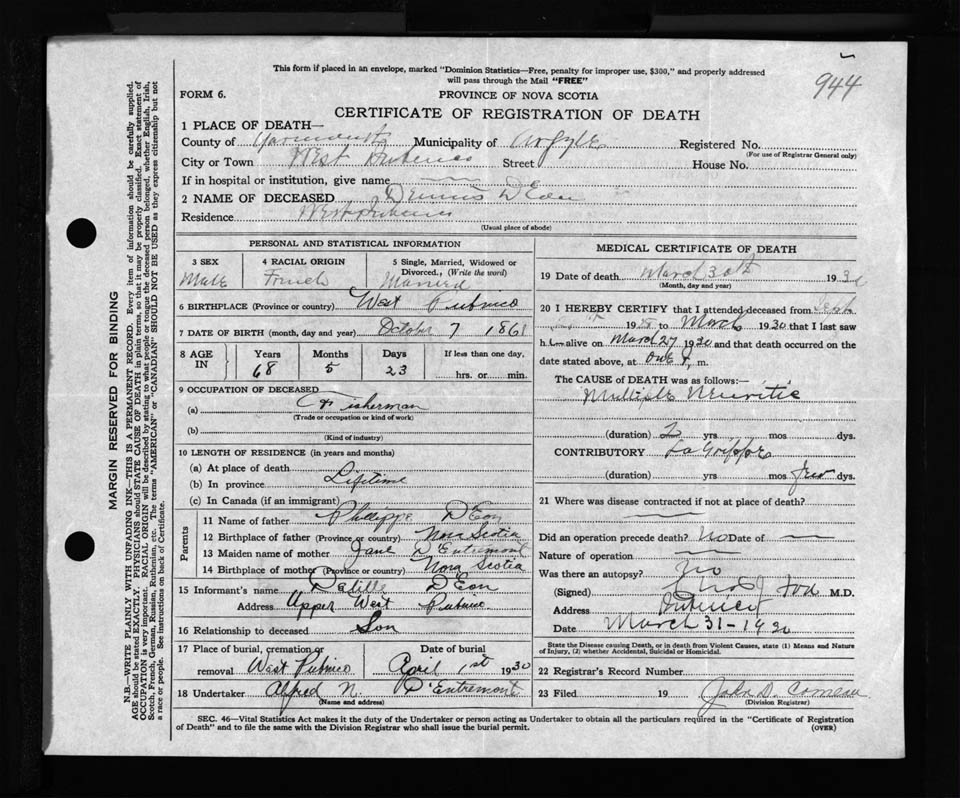 944
This form if placed in an envelope, marked "Dominion Statistics—Free, penalty for improper use, $300," and properly addressed
will pass through the Mail "FREE"
FORM 6. PROVINCE OF NOVA SCOTIA
CERTIFICATE OF REGISTRATION OF DEATH
1 PLACE OF DEATH—
County of Yarmouth Municipality of Argyle Registered No.
(For use of Registrar General only)
City or Town West Pubnico Street House No.
If in hospital or institution, give name
2 NAME OF DECEASED Dennis D'Eon
Residence West Pubnico
(Usual place of abode)
PERSONAL AND STATISTICAL INFORMATION
3 SEX 4 RACIAL ORIGIN 5 Single, Married, Widowed or Divorced., (Write the word)
Male French Married
6 BIRTHPLACE (Province or country) West Pubnico
7 DATE OF BIRTH (month, day and year) October 7 1861
8 AGE IN Years Months Days If less than one day,
68 5 23 hrs. or min.
9 OCCUPATION OF DECEASED
(a) Fisherman
(Trade or occupation or kind of work)
(b)
(Kind of industry)
10 LENGTH OF RESIDENCE (in years and months)
(a) At place of death
(b) In province Lifetime
(c) In Canada (if an immigrant)
Parents
11 Name of father Philippe D'Eon
12 Birthplace of father (Province or country) Nova Scotia
13 Maiden name of mother Jane D'Entremont
14 Birthplace of mother (Province or country) Nova Scotia
15 Informant's name D'Eon
Address Upper West Pubnico
16 Relationship to deceased Son
17 Place of burial, cremation or Date of burial
removal West Pubnico April 1st 1930
18 Undertaker Alfred N. D'Entremont
(Name and address)
MEDICAL CERTIFICATE OF DEATH
19 Date of death March 30th 1930
(Month, day and year)
20 I HEREBY CERTIFY that I attended deceased from
19 to March 1930 that I last saw
h im alive on March 27 1930 and that death occurred on
date stated above, at one P. m.
The CAUSE OF DEATH was as follows:—
Multiple Neuritis
(duration) 2 yrs mos dys.
CONTRIBUTORY La Grippe
(duration) yrs mos few dys.
21 Where was disease contracted if not at place of death?
Did an operation precede death? No Date of
Nature of operation
Was there an autopsy? No
(Signed) M.D.
Address Pubnico
Date March 31-1930
State the Disease causing Death, or in death from Violent Causes, state (1) Means and Nature
of Injury, (2) whether Accidental, Suicidal or Homicidal.
22 Registrar's Record Number
23 Filed 19 John D. Comeau
(Division Registrar)
SEC. 46—Vital Statistics Act makes it the duty of the Undertaker or person acting as Undertaker to obtain all the particulars required in the "Certificate of Registration
of Death" and to file the same with the Division Registrar who shall issue the burial permit. (OVER)
MARGIN RESERVED FOR BINDING
N.B.—WRITE PLAINLY WITH UNFADING INK—THIS IS A PERMANENT RECORD. Every item of information should be carefully supplied.
AGE should be stated EXACTLY. PHYSICIANS should STATE CAUSE OF DEATH in plain terms, so that it may be properly classified. Exact statement of
OCCUPATION is very important. RACIAL ORIGIN will be described by stating to what people or tongue the deceased person belonged, whether English, Irish,
Scotch, French, German, Russian, Ruthenian, etc. The terms "AMERICAN" or "CANADIAN" SHOULD NOT BE USED as they express citizenship but not
a race or people. See instructions on back of Certificate.